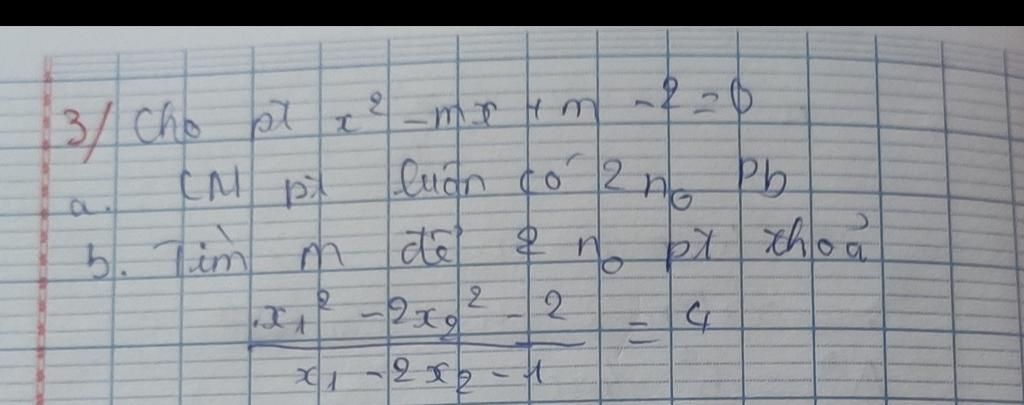 3/ Cho pt x² - mx + m - 2 = 0
a. CM pt luôn có 2 n₀ pb
b. Tìm m để 2 n₀ pt thoả
x₁² - 2x₂² - 2 / x₁ - 2x₂ - 1 = 4